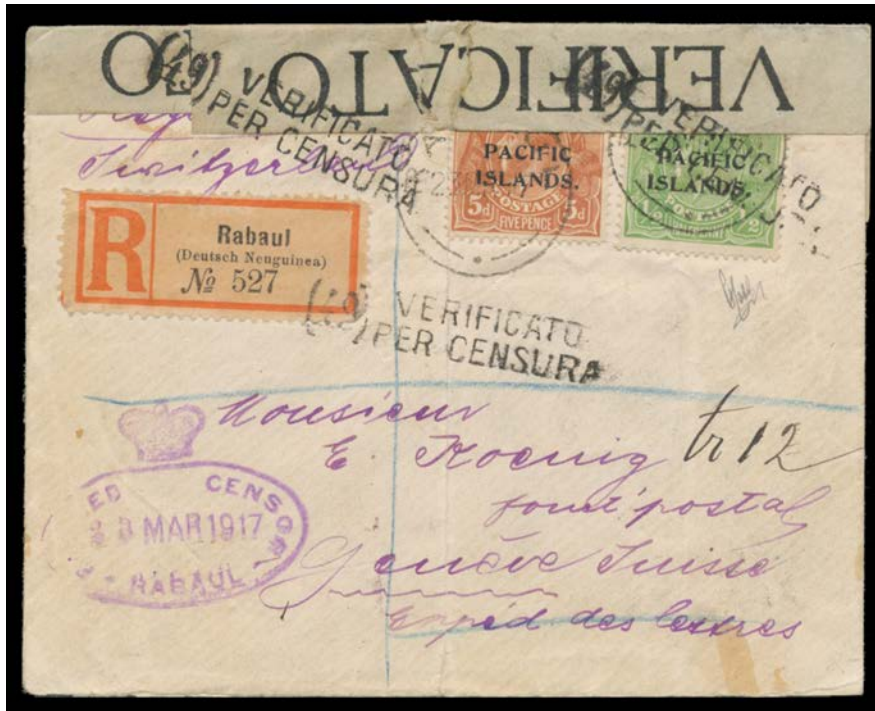 VERIFICATO
(49) VERIFICATO
PER CENSURA
(49) VERIFICATO
PER CENSURA
Switzerland
PACIFIC
ISLANDS.
5d POSTAGE 5d
FIVE PENCE
PACIFIC
ISLANDS.
R
Rabaul
(Deutsch Neuguinea)
№ 527
(49) VERIFICATO
PER CENSURA
Monsieur
E. Koenig tr 12
postal
Genève Suisse
Expéd des lettres
CENSOR
MAR 1917
RABAUL